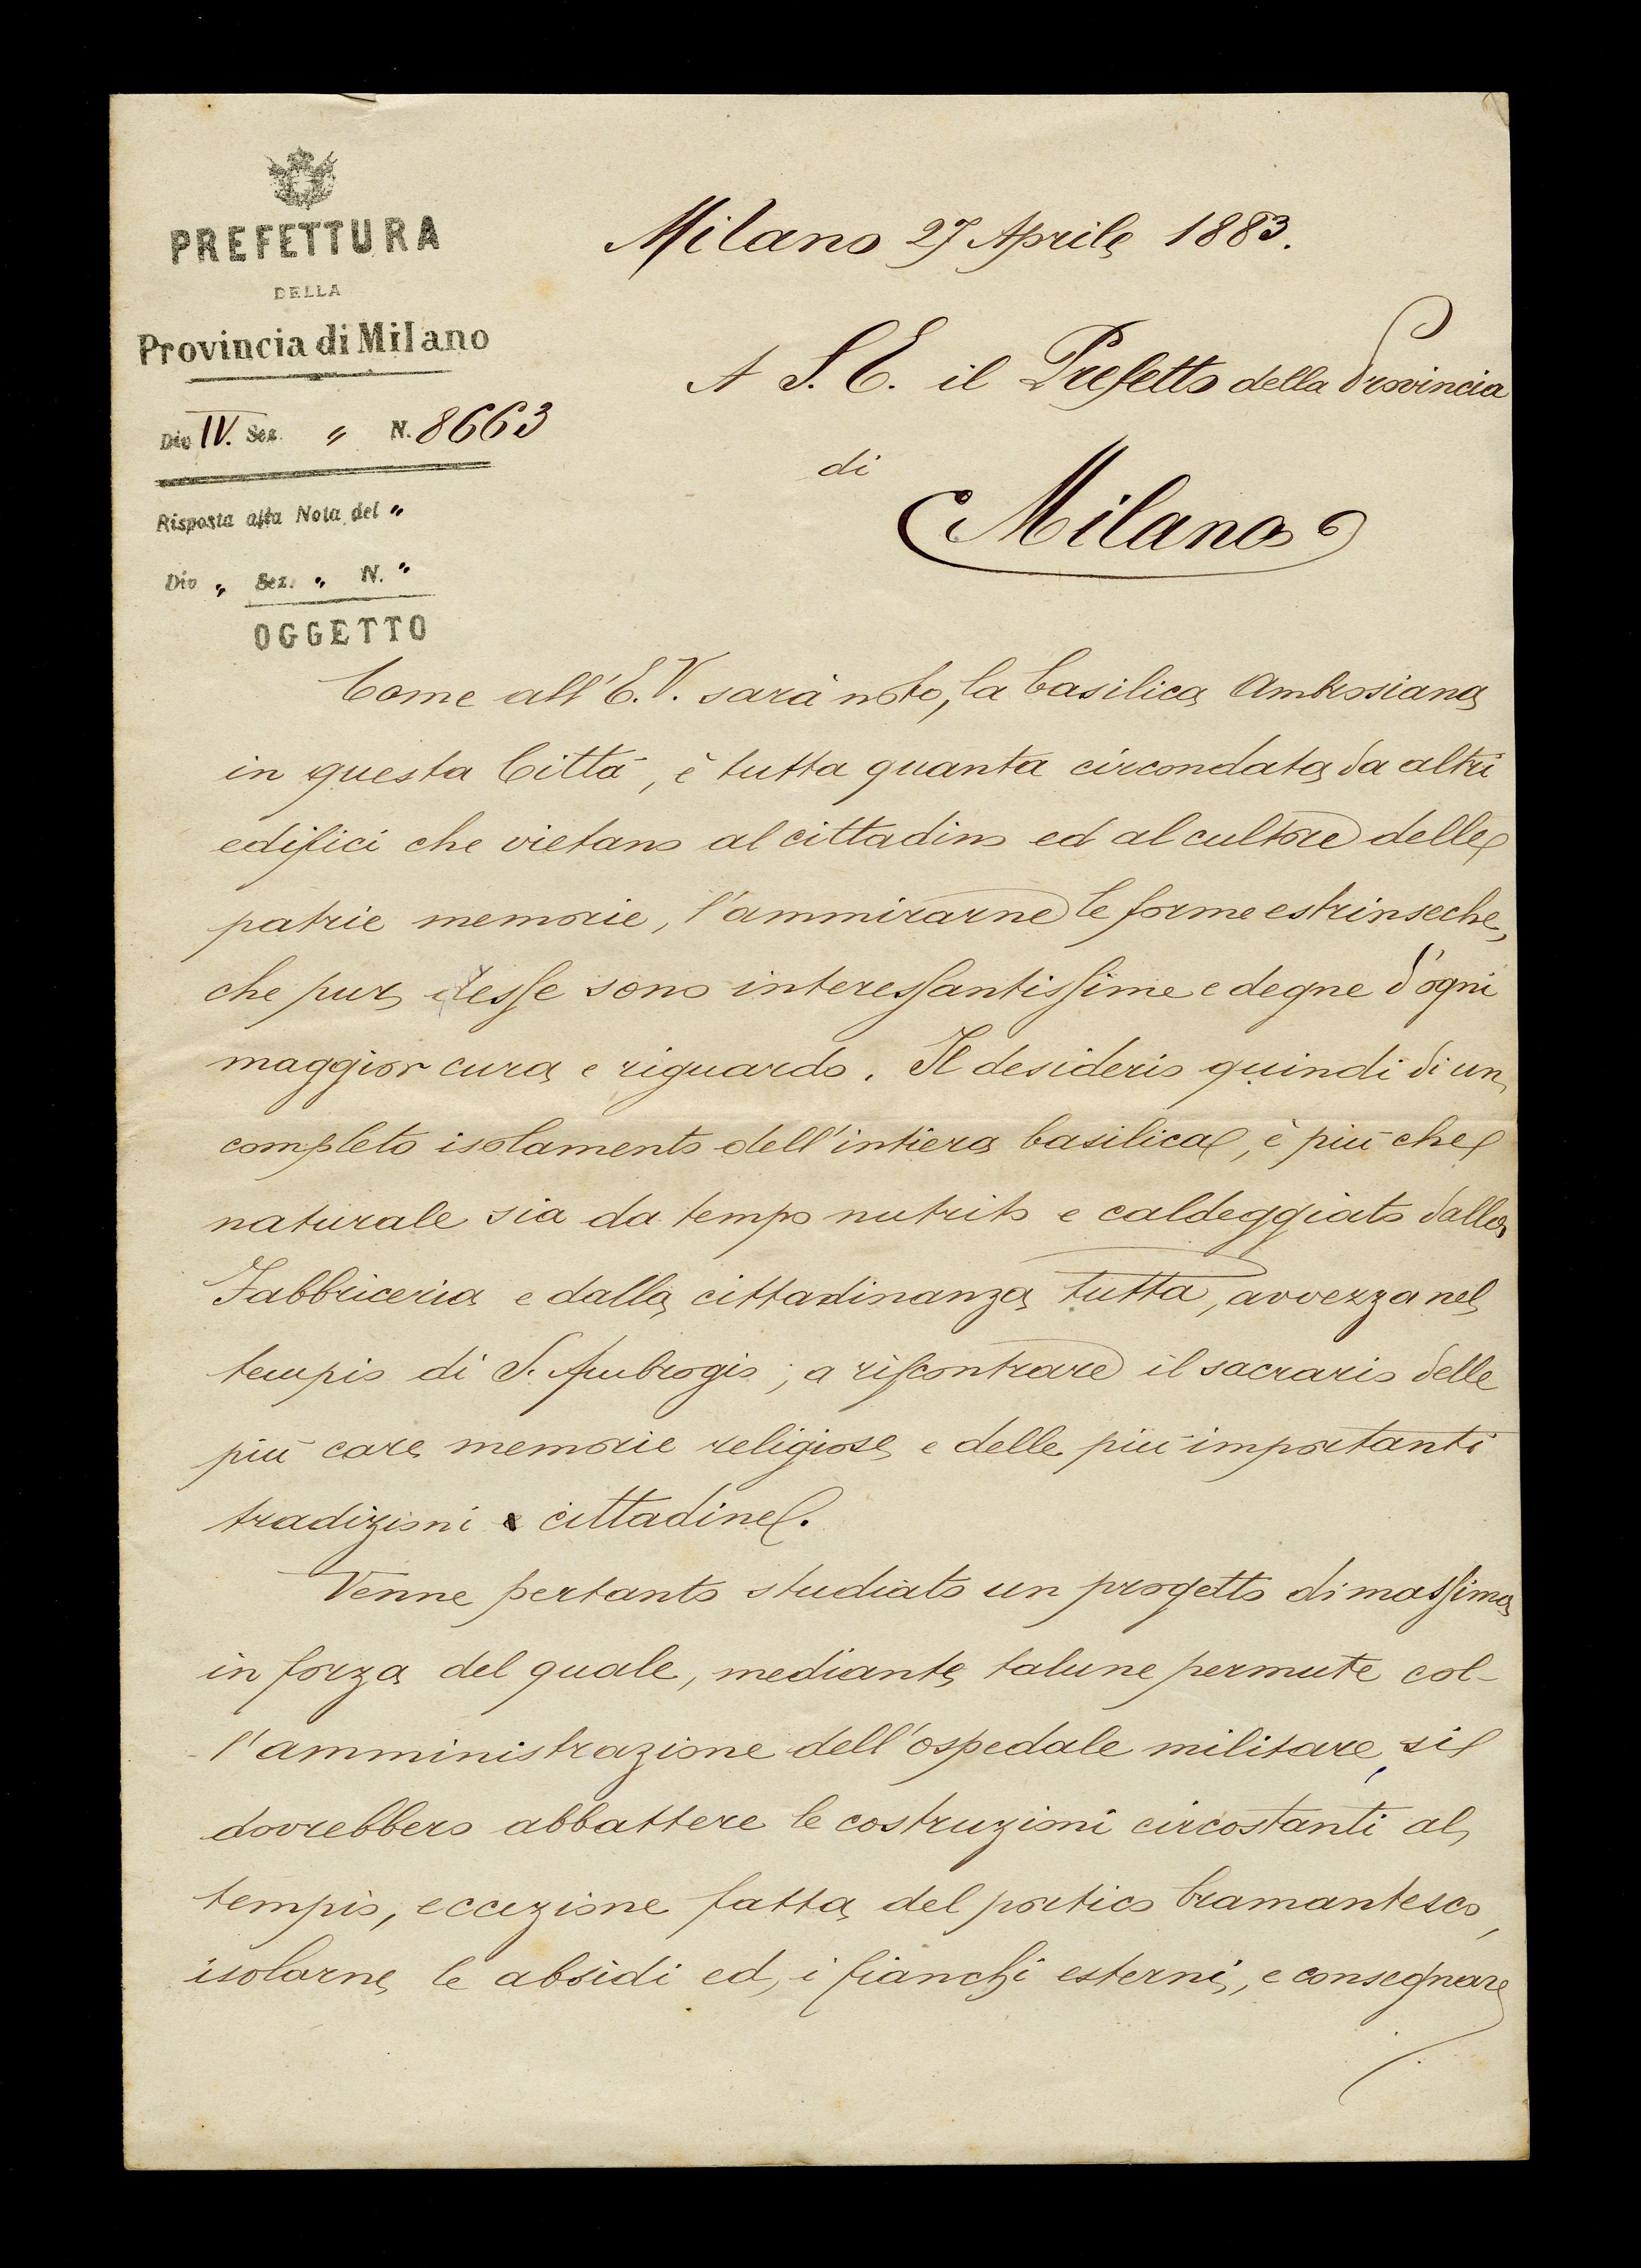 PREFETTURA
DELLA
Provincia di Milano
Div IV. Sez. " N. 8663
Risposta alla Nota del "
Div " Sez. " N. "
OGGETTO
Milano 27 Aprile 1883.
A S. E. il Prefetto della Provincia
di
Milano
Come all'E.V. sarà noto, la basilica Ambrosiana
in questa Città, è tutta quanta circondata da altri
edifici che vietano al cittadino ed al cultore delle
patrie memorie, l'ammirarne le forme estrinseche,
che pur desse sono interessantissime e degne d'ogni
maggior cura e riguardo. Il desiderio quindi di un
completo isolamento dell'intiera basilica, è più che
naturale sia da tempo nutrito e caldeggiato dalla
Fabbriceria e dalla cittadinanza tutta, avvezza nel
tempio di S. Ambrogio, a riscontrare il sacrario delle
più care memorie religiose e delle più importanti
tradizioni cittadine.
Venne pertanto studiato un progetto di massima
in forza del quale, mediante talune permute col-
l'amministrazione dell'ospedale militare, si
dovrebbero abbattere le costruzioni circostanti al
tempio, eccezione fatta del portico bramantesco,
isolarne le absidi ed i fianchi esterni, e consegnare